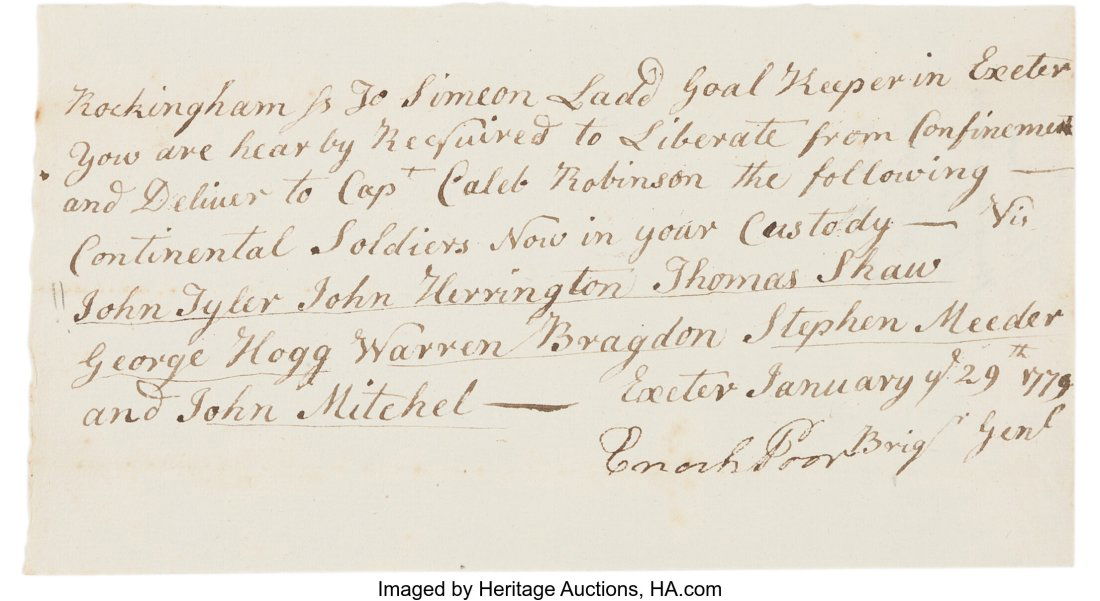 Rockingham ss To Simeon Ladd Goal Keeper in Exeter
You are hearby Recquired to Liberate from Confinement
and Deliver to Capt Caleb Robinson the following —
Continental Soldiers Now in your Custody — Vis
John Tyler John Herrington Thomas Shaw
George Hogg Warren Bragdon Stephen Meeder
and John Mitchel — Exeter January ye 29th 1779
Enoch Poor Brigr Genl
Imaged by Heritage Auctions, HA.com